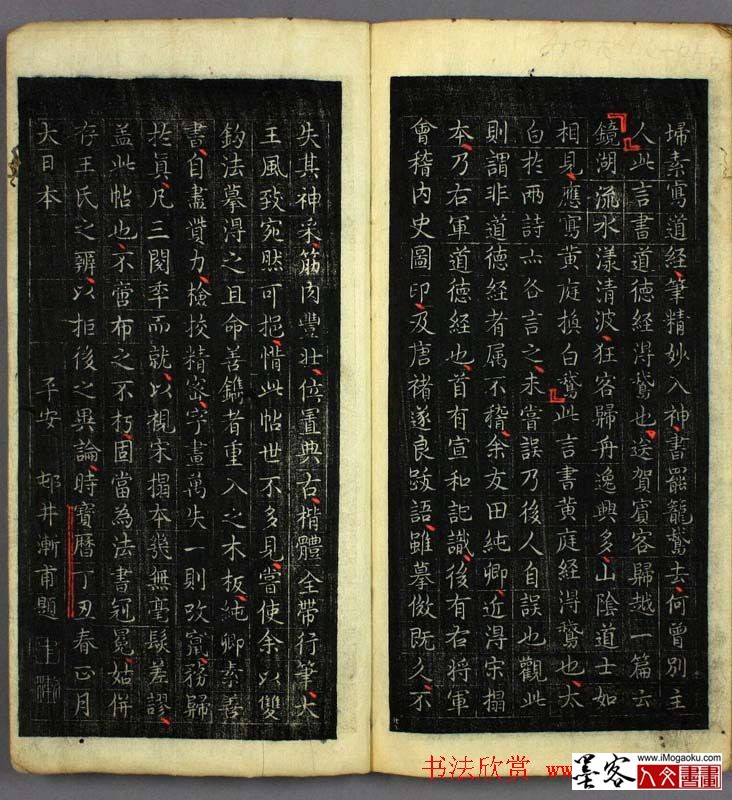 埽素寫道經筆精妙入神書罷籠鵞去何曾別主
人此言書道德經淂鵞也送賀賓客歸越一篇云
鏡湖流水漾清波狂客歸舟逸興多山陰道士如
相見應寫黄庭換白鵞此言書黄庭経淂鵞也太
白於兩詩亦各言之未嘗誤乃後人自誤也觀此
則謂非道德經者属不稽余友田純卿近淂宋搨
本乃右軍道德経也首有宣和記識後有右將軍
會稽内史圖印及唐褚遂良跋語雖摹倣既久不
失其神采筋肉豐壯位置典古楷體全帶行筆大
王風致宛然可挹惜此帖世不多見嘗使余以雙
鈎法摹淂之且命善鐫者重入之木板純卿素善
書自盡貲力檢挍精密字畫萬失一則改甯務歸
於真凡三閲季而就以視宋搨本幾無毫髪差謬
盖此帖也不啻布之不朽固當為法書冠冕姑併
存王氏之辨以拒後之異論時寶暦丁丑春正月
大日本 平安 邨井漸甫題
书法欣赏 www
墨客 www.iMogaoku.com
人文書畫